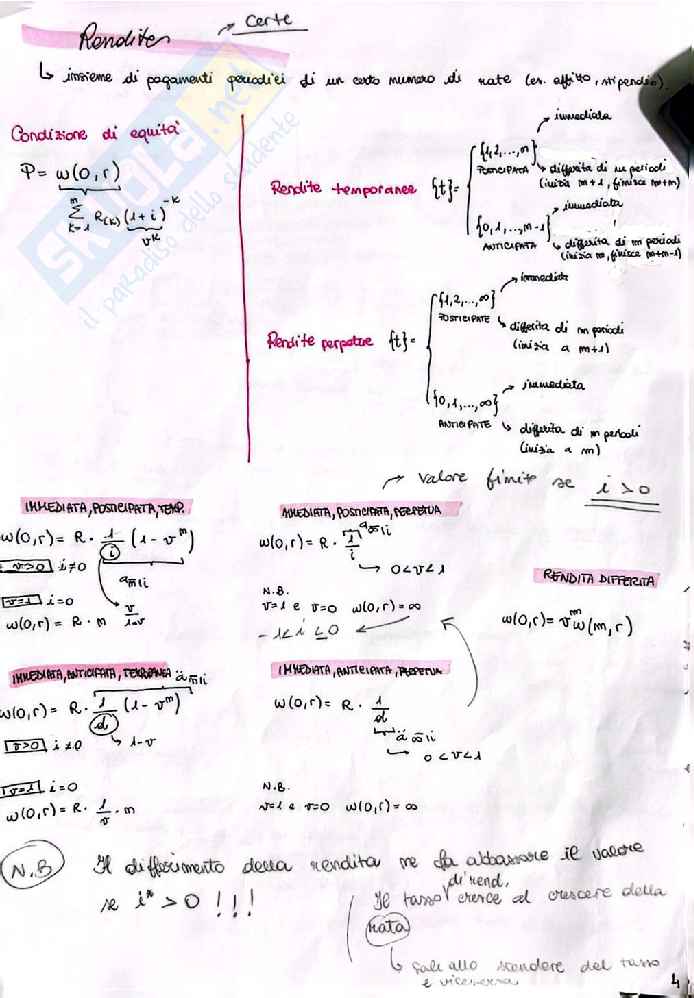 Rendite → Certe
↳ insieme di pagamenti periodici di un certo numero di rate (es. affitto, stipendio).
SKUOLA.net
il paradiso dello studente
Condizione di equità
P = w(0,r)
n
Σ R(k) (1+i)^-k
k=1
v^k
Rendite temporanee {t} =
{1,2,...,n} → immediata
POSTICIPATA ↘ differita di m periodi
(inizia m+1, finisce m+n)
{0,1,...,n-1} → immediata
ANTICIPATA ↘ differita di m periodi
(inizia m, finisce m+n-1)
Rendite perpetue {t} =
{1,2,...,∞} → immediata
POSTICIPATE ↘ differita di m periodi
(inizia a m+1)
{0,1,...,∞} → immediata
ANTICIPATE ↘ differita di m periodi
(inizia a m)
→ valore finito se i > 0
IMMEDIATA, POSTICIPATA, TEMP.
w(0,r) = R · 1/i (1 - v^n)
v>0 i≠0
a n̅|i
v=1 i=0
v/1-v
w(0,r) = R · n
IMMEDIATA, POSTICIPATA, PERPETUA
w(0,r) = R · 1/i a ∞̅|i
→ 0<v<1
N.B.
v=1 e v=0 w(0,r) = ∞
-1< i ≤ 0
RENDITA DIFFERITA
w(0,r) = v^m w(m,r)
IMMEDIATA, ANTICIPATA, TEMPORANEA ä n̅|i
w(0,r) = R · 1/d (1 - v^n)
v>0 i≠0 ↘ 1-v
v=1 i=0
w(0,r) = R · 1/v · n
IMMEDIATA, ANTICIPATA, PERPETUA
w(0,r) = R · 1/d
ä ∞̅|i
→ 0<v<1
N.B.
v=1 e v=0 w(0,r) = ∞
N.B Il differimento della rendita ne fa abbassare il valore
se i* > 0 !!!
di rend.
Il tasso cresce al crescere della
rata
↳ sale allo scendere del tasso
e viceversa
4